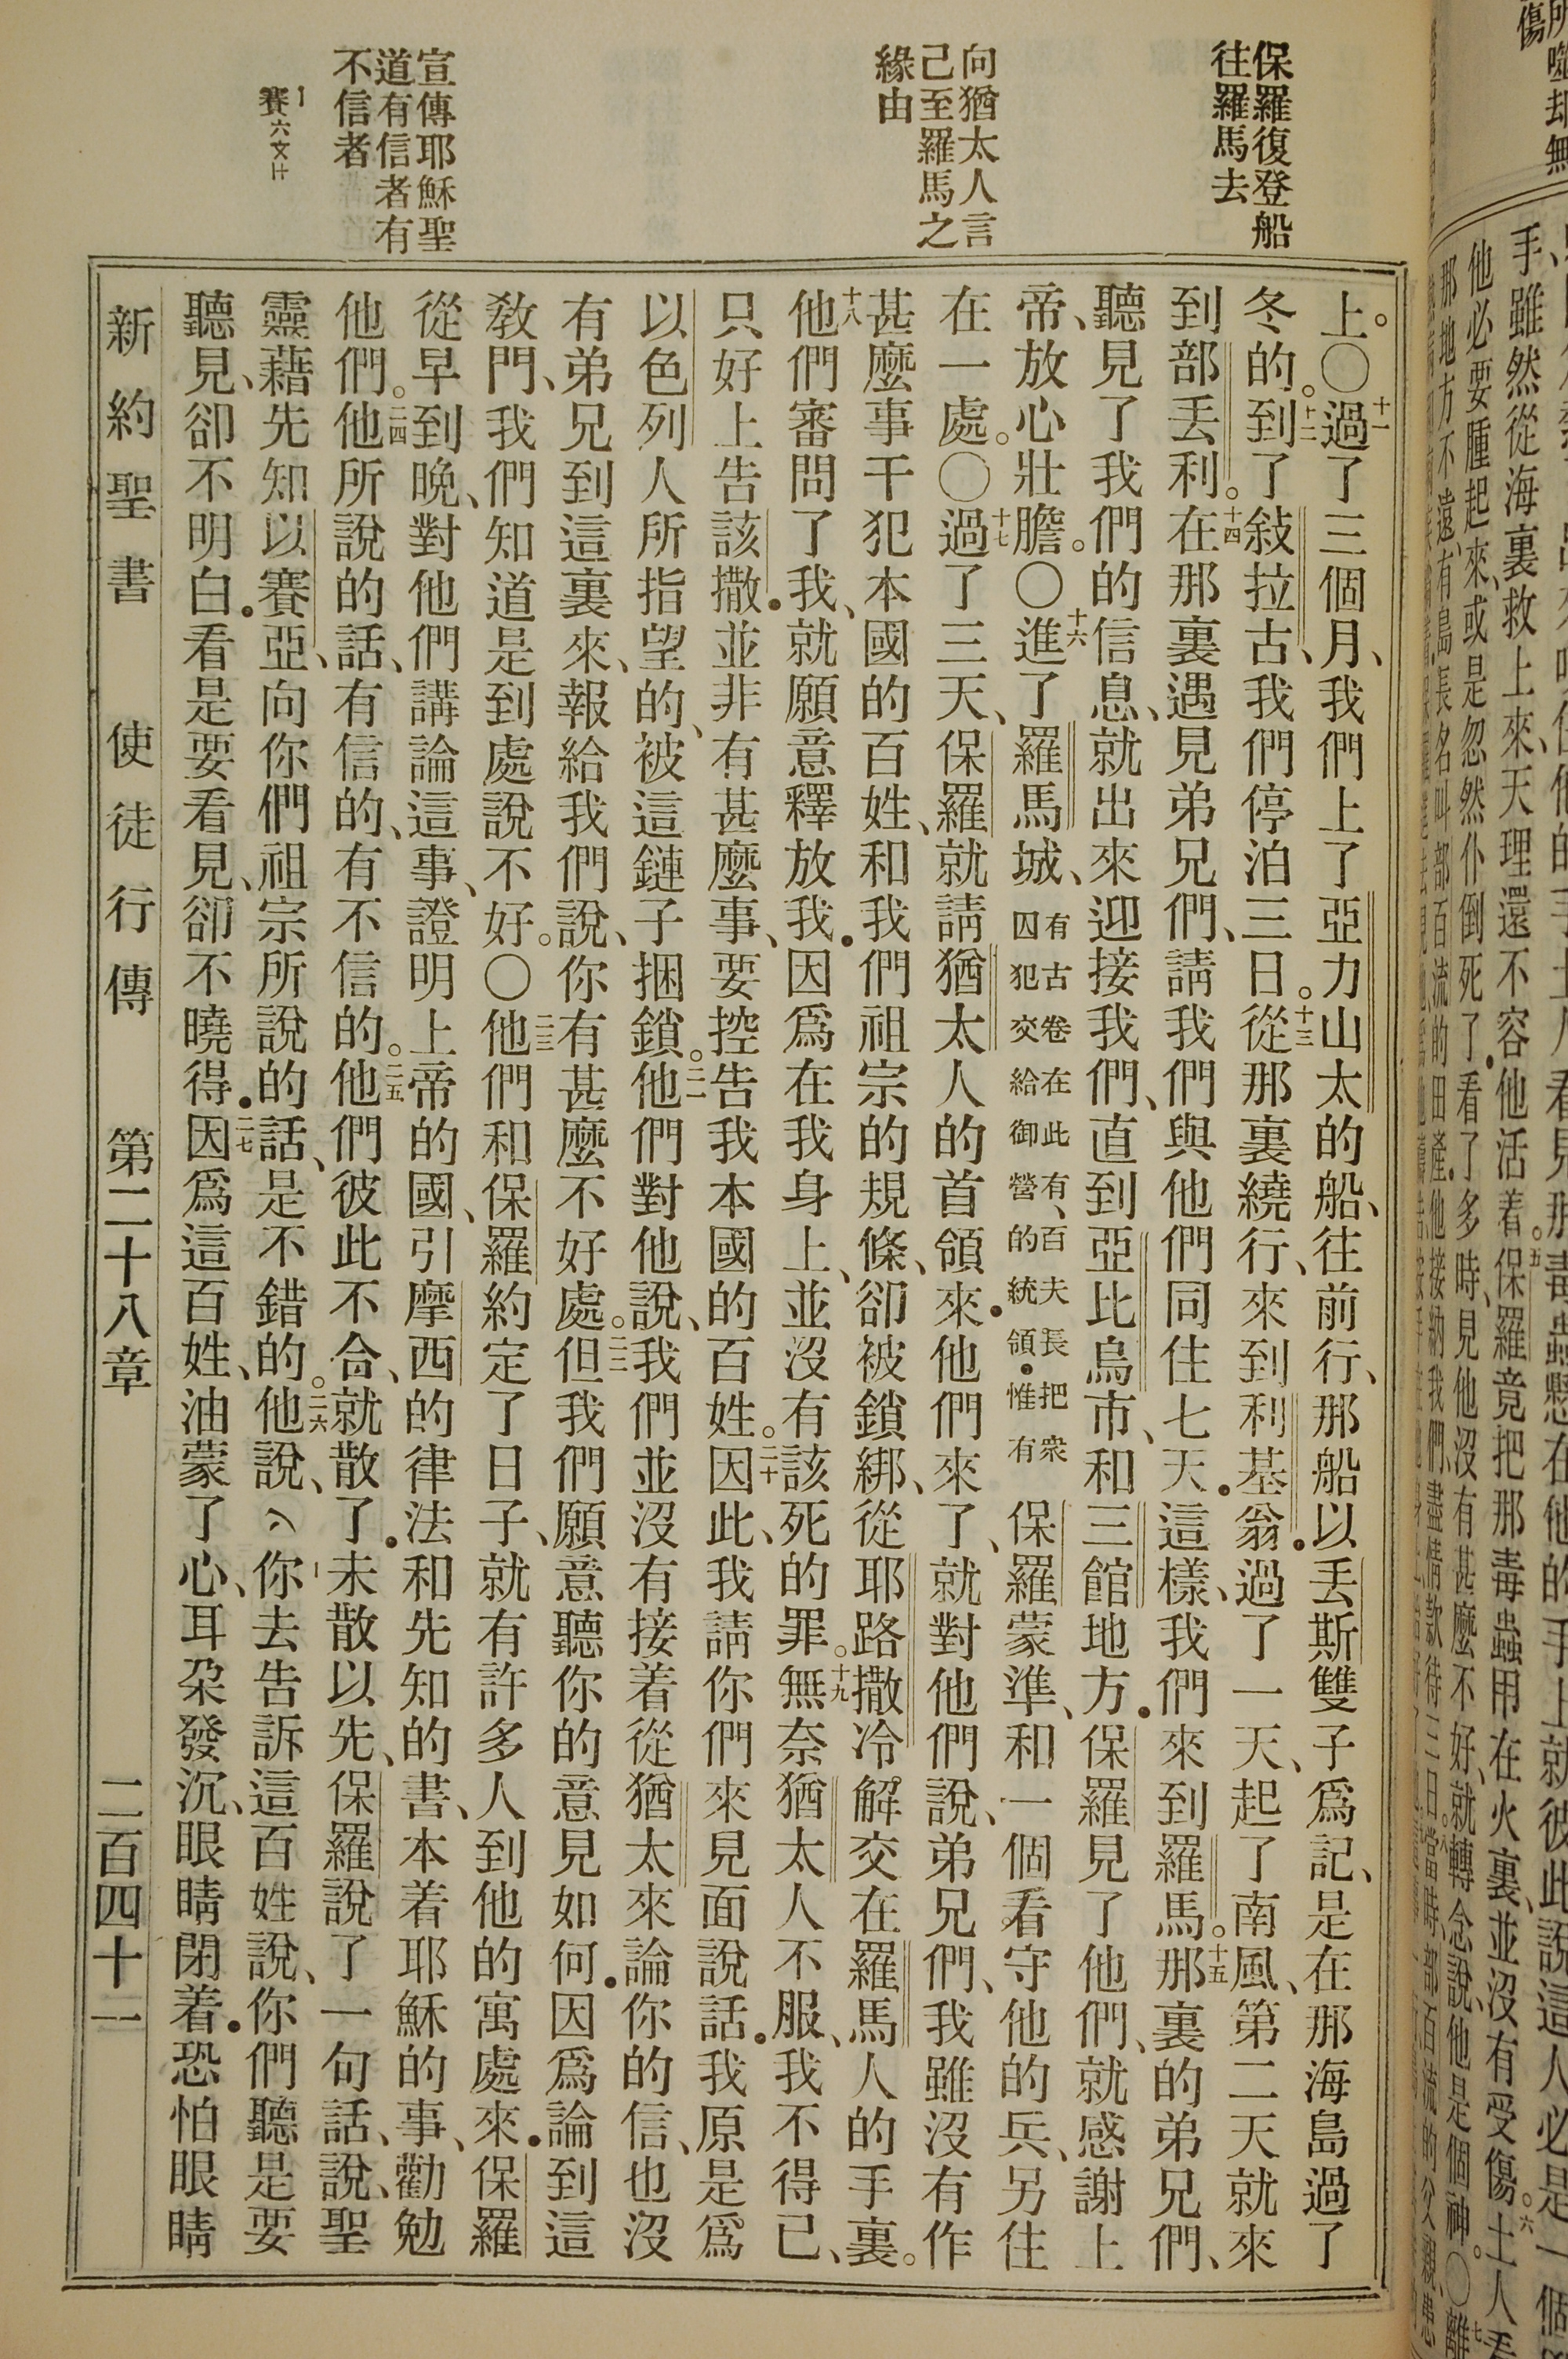 保羅復登船
往羅馬去
向猶太人言
己至羅馬之
緣由
宣傳耶穌聖
道有信者有
不信者
上。○十一過了三個月、我們上了亞力山太的船、往前行、那船以丟斯雙子爲記、是在那海島過了
冬的。十二到了敍拉古、我們停泊三日。十三從那裏繞行、來到利基翁。過了一天、起了南風、第二天就來
到部丟利。十四在那裏遇見弟兄們、請我們與他們同住七天。這樣、我們來到羅馬。十五那裏的弟兄們、
聽見了我們的信息、就出來迎接我們、直到亞比烏市、和三館地方。保羅見了他們、就感謝上
帝、放心壯膽。○十六進了羅馬城、有古卷在此有、百夫長把衆囚犯交給御營的統領。惟有保羅蒙準、和一個看守他的兵、另住
在一處。○十七過了三天、保羅就請猶太人的首領來。他們來了、就對他們說、弟兄們、我雖沒有作
甚麼事干犯本國的百姓、和我們祖宗的規條、卻被鎖綁、從耶路撒冷解交在羅馬人的手裏。
十八他們審問了我、就願意釋放我。因爲在我身上、並沒有該死的罪。十九無奈猶太人不服、我不得已、
只好上告該撒。並非有甚麼事、要控告我本國的百姓。二十因此、我請你們來見面說話。我原是爲
以色列人所指望的、被這鏈子捆鎖。二一他們對他說、我們並沒有接着從猶太來論你的信、也沒
有弟兄到這裏來、報給我們說、你有甚麼不好處。二二但我們願意聽你的意見如何。因爲論到這
教門、我們知道是到處說不好。○二三他們和保羅約定了日子、就有許多人到他的寓處來。保羅
從早到晚、對他們講論這事、證明上帝的國、引摩西的律法和先知的書、本着耶穌的事、勸勉
他們。二四他所說的話、有信的、有不信的。二五他們彼此不合、就散了。未散以先、保羅說了一句話、說、聖
靈藉先知以賽亞、向你們祖宗所說的話、是不錯的。二六他說、你去告訴這百姓說、你們聽是要
聽見、卻不明白。看是要看見、卻不曉得。二七因爲這百姓、油蒙了心、耳朶發沉、眼睛閉着。恐怕眼睛
新約聖書　使徒行傳　第二十八章　二百四十一